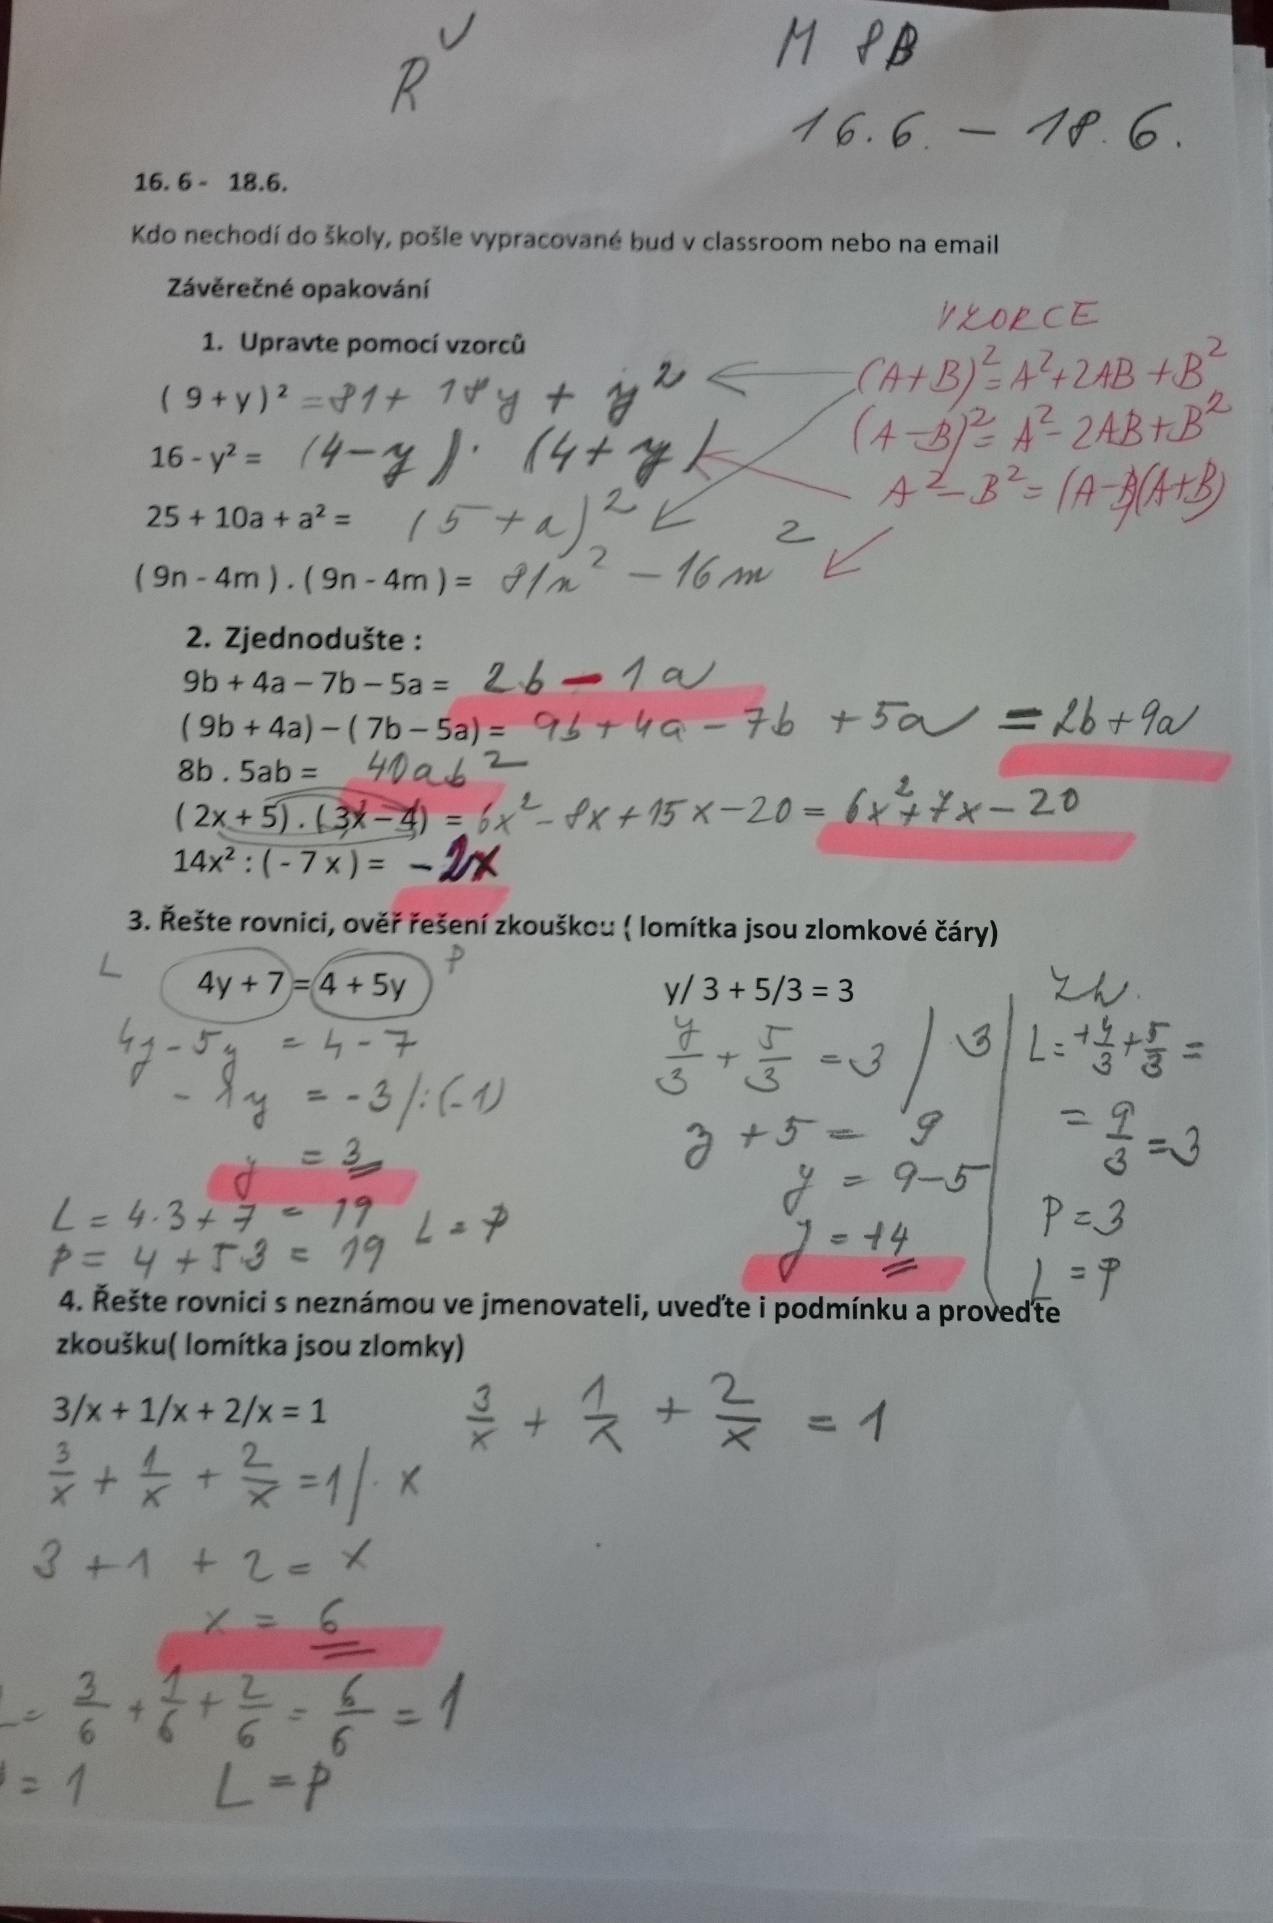 R
M 8B
16.6. – 18.6.
16. 6 - 18.6.
Kdo nechodí do školy, pošle vypracované bud v classroom nebo na email
Závěrečné opakování
VZORCE
1. Upravte pomocí vzorců
(A+B)² = A²+2AB+B²
( 9 + y ) ² = 81 + 18y + y²
(A-B)² = A²- 2AB+B²
16 - y² = (4-y) · (4+y)
A²-B² = (A-B)(A+B)
25 + 10a + a² = (5+a)²
( 9n - 4m ) . ( 9n - 4m ) = 81n² - 16m²
2. Zjednodušte :
9b + 4a – 7b – 5a = 2b - 1a
( 9b + 4a) – ( 7b – 5a) = 9b + 4a - 7b + 5a = 2b + 9a
8b . 5ab = 40ab²
( 2x + 5) . ( 3x – 4) = 6x² - 8x + 15x - 20 = 6x² + 7x - 20
14x² : ( - 7 x ) = -2x
3. Řešte rovnici, ověř řešení zkouškou ( lomítka jsou zlomkové čáry)
L 4y + 7 = 4 + 5y P
4y - 5y = 4 - 7
- 1y = -3 /:(-1)
y = 3
L = 4·3+7 = 19 L = P
P = 4 + 5·3 = 19
y/ 3 + 5/3 = 3
y/3 + 5/3 = 3 / ·3
y + 5 = 9
y = 9-5
y = +4
Zk.
L = +4/3 + 5/3 =
= 9/3 = 3
P = 3
L = P
4. Řešte rovnici s neznámou ve jmenovateli, uveďte i podmínku a proveďte
zkoušku( lomítka jsou zlomky)
3/x + 1/x + 2/x = 1 3/x + 1/x + 2/x = 1
3/x + 1/x + 2/x = 1 / · x
3 + 1 + 2 = x
x = 6
L = 3/6 + 1/6 + 2/6 = 6/6 = 1
= 1 L = P